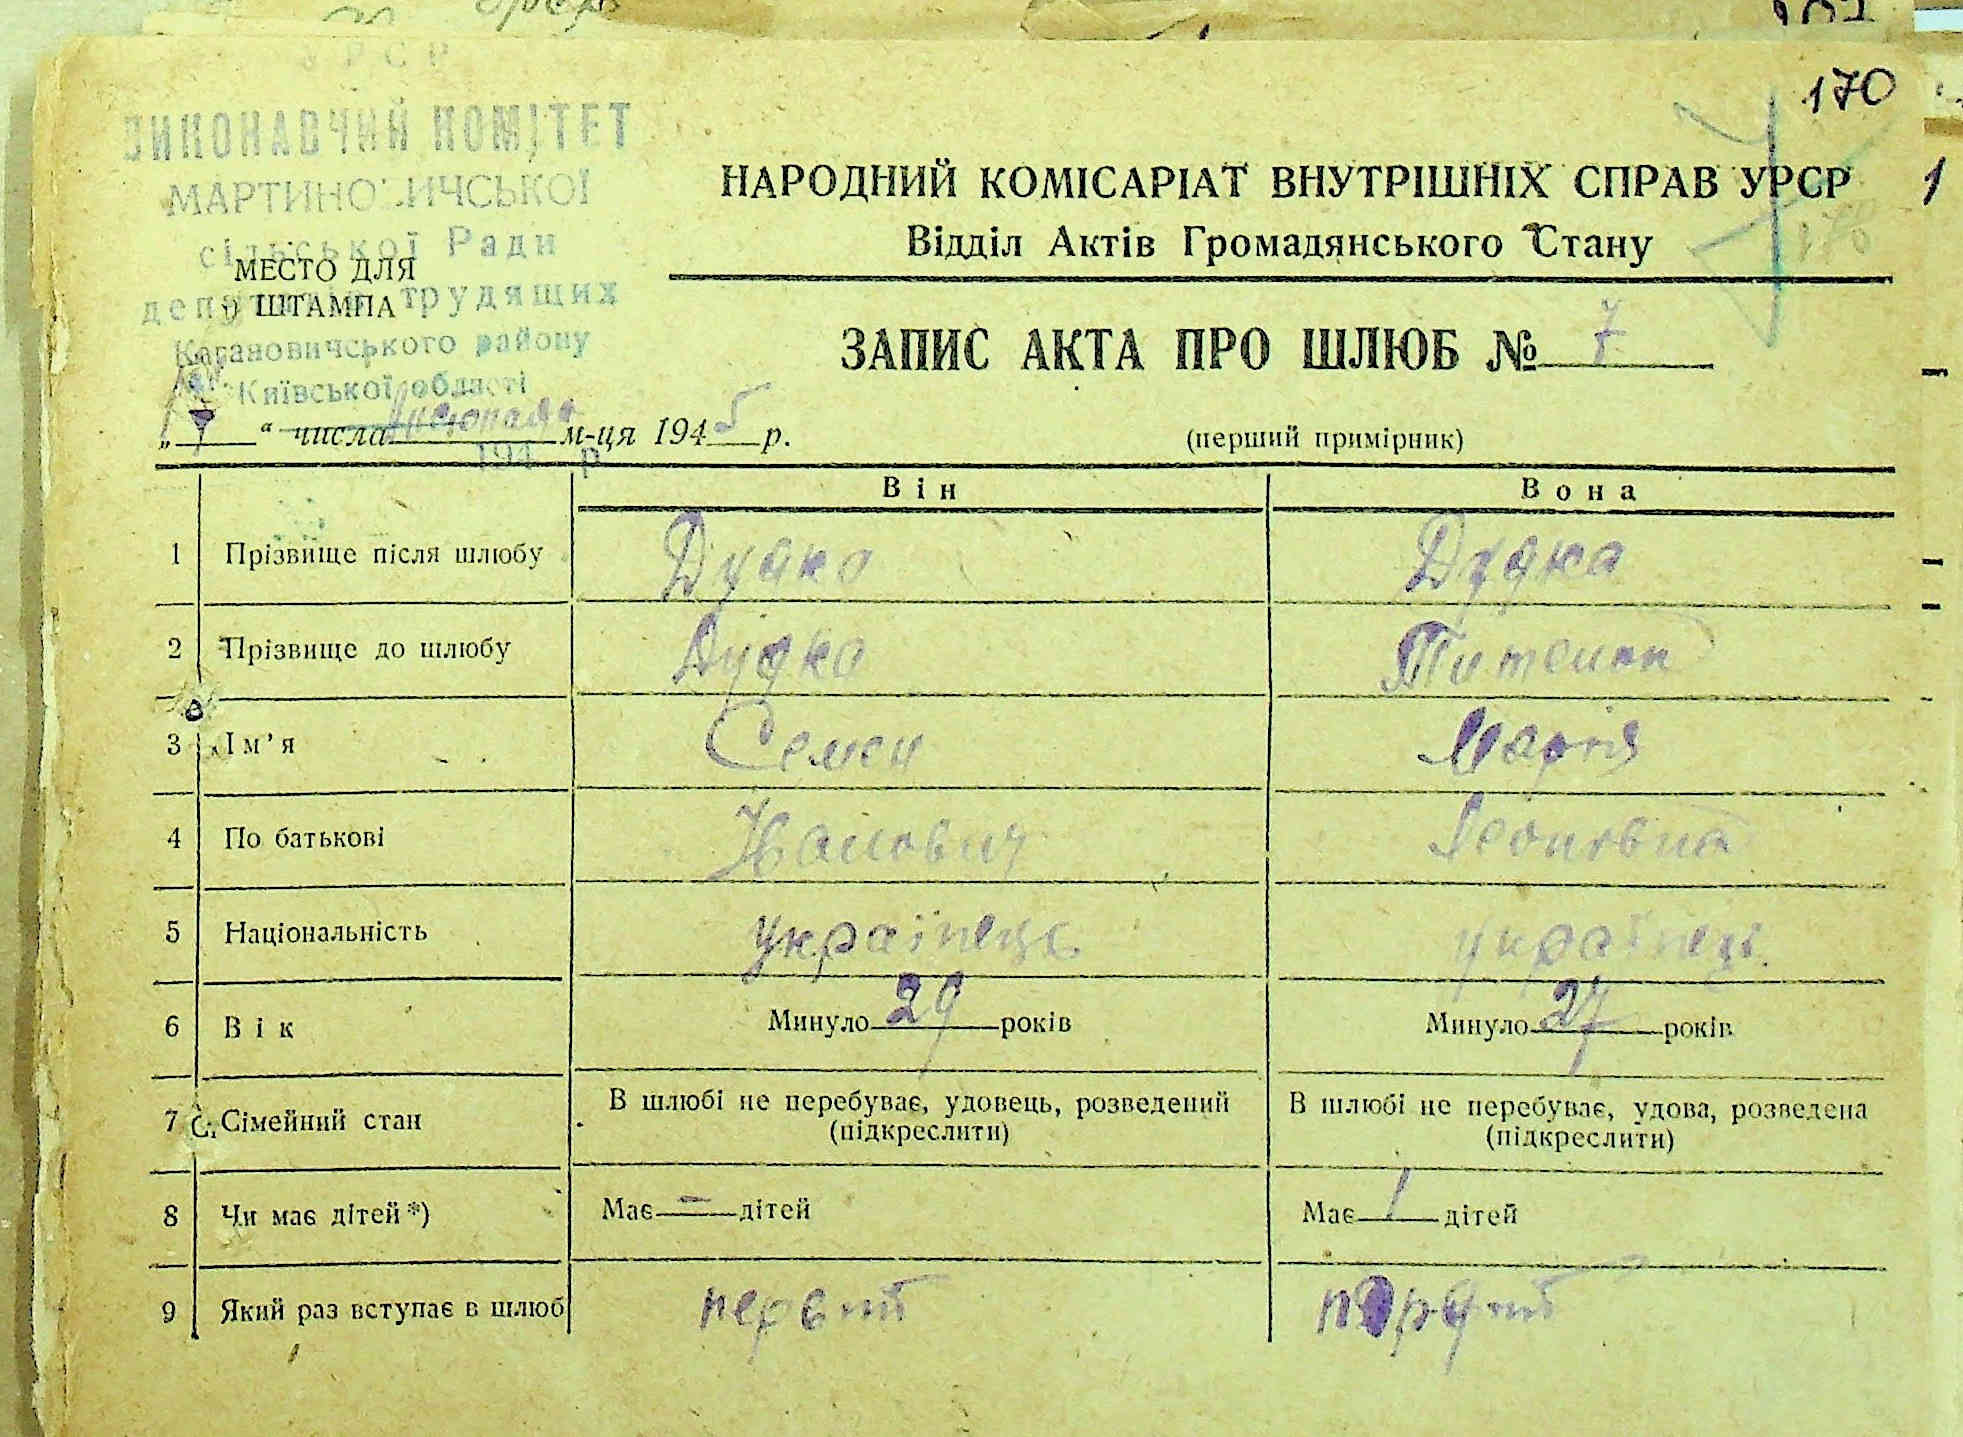 170
УРСР
ВИКОНАВЧИЙ КОМІТЕТ
МАРТИНОВИЧСЬКОЇ
сільської Ради
депутатів трудящих
Кагановичського району
Київської області
194 р
МЕСТО ДЛЯ
ШТАМПА
НАРОДНИЙ КОМІСАРІАТ ВНУТРІШНІХ СПРАВ УРСР
Відділ Актів Громадянського Стану
170
ЗАПИС АКТА ПРО ШЛЮБ № 7
„ “ числа листопада м-ця 1945 р.
(перший примірник)
Він Вона
1 Прізвище після шлюбу Дудко Дудка
2 Прізвище до шлюбу Дудко
3 Ім’я Семен Марія
4 По батькові Іванович
5 Національність українець українець
6 Вік Минуло 29 років Минуло 27 років
7 Сімейний стан В шлюбі не перебуває, удовець, розведений (підкреслити) В шлюбі не перебуває, удова, розведена (підкреслити)
8 Чи має дітей*) Має — дітей Має 1 дітей
9 Який раз вступає в шлюб первий